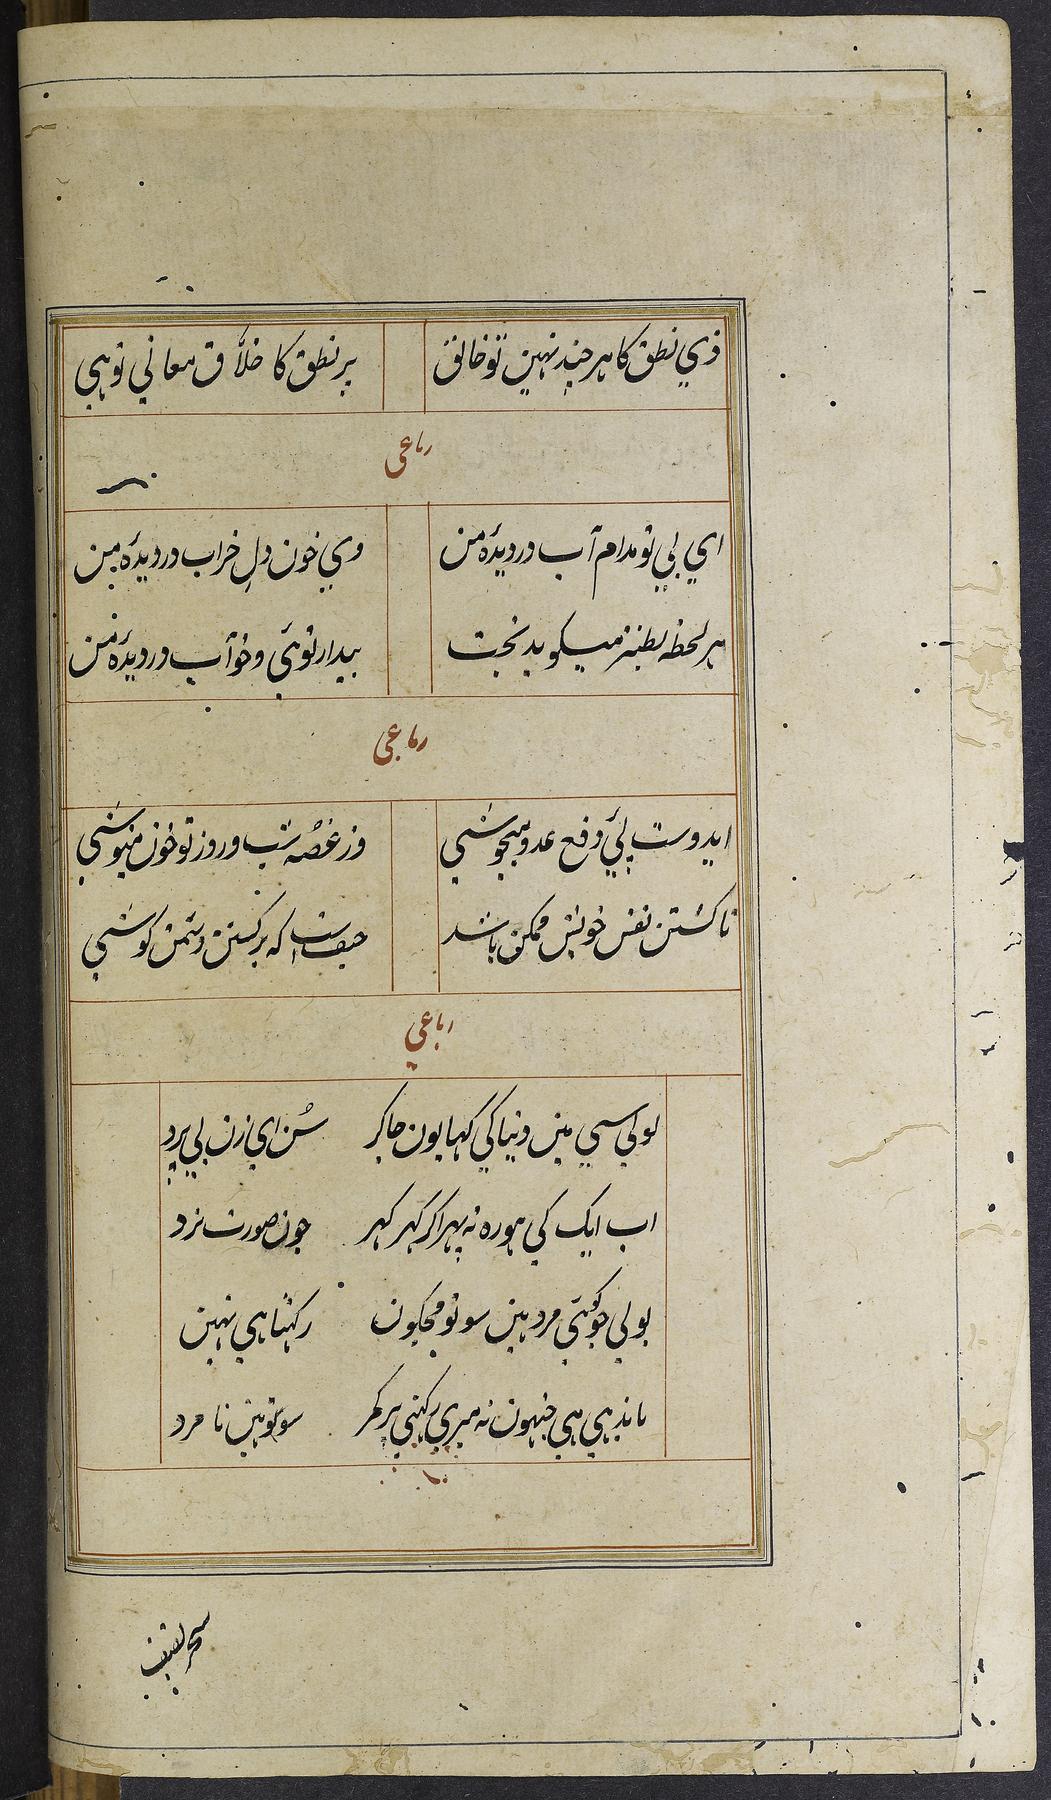 ذي نطق کا هر چند نهین تو خالق پر نطق کا خلّاق معاني تو هي
رباعی
اي بي تو مدام آب در دیدهٔ من وي خون دل خراب در دیدهٔ من
هر لحظه بطنز میگوید بخت بیدار توئي و خواب در دیدهٔ من
رباعی
ایدوست پئي دفع عدو میجوشي وز غصّه شب و روز تو خون مینوشي
تا کشتن نفس خویش ممکن باشد حیف است که بر کشتن دشمن کوشي
رباعي
بولي سي مین دنیا کي کها یون جا کر سُن اي زن بي پرد
اب ایک کي هو ره نه پهرا کر گهر گهر جون صورت نرد
بولي جو کوئي مرد هین سو تو مجکون رکهتا هي نهین
باندهي هي جنهون نه میري رکهني پر کمر سو تو هین نامرد